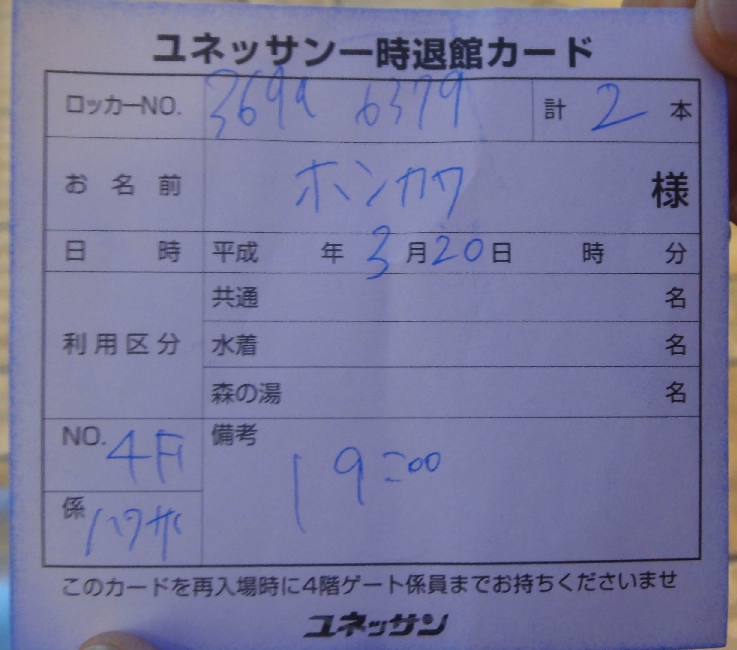 ユネッサン一時退館カード
ロッカーNO. 3699 6379 計 2 本
お名前 ホンカワ 様
日時 平成 年 3 月 20 日 時 分
利用区分 共通 名
水着 名
森の湯 名
NO. 4F 備考 19:00
係
このカードを再入場時に4階ゲート係員までお持ちくださいませ
ユネッサン